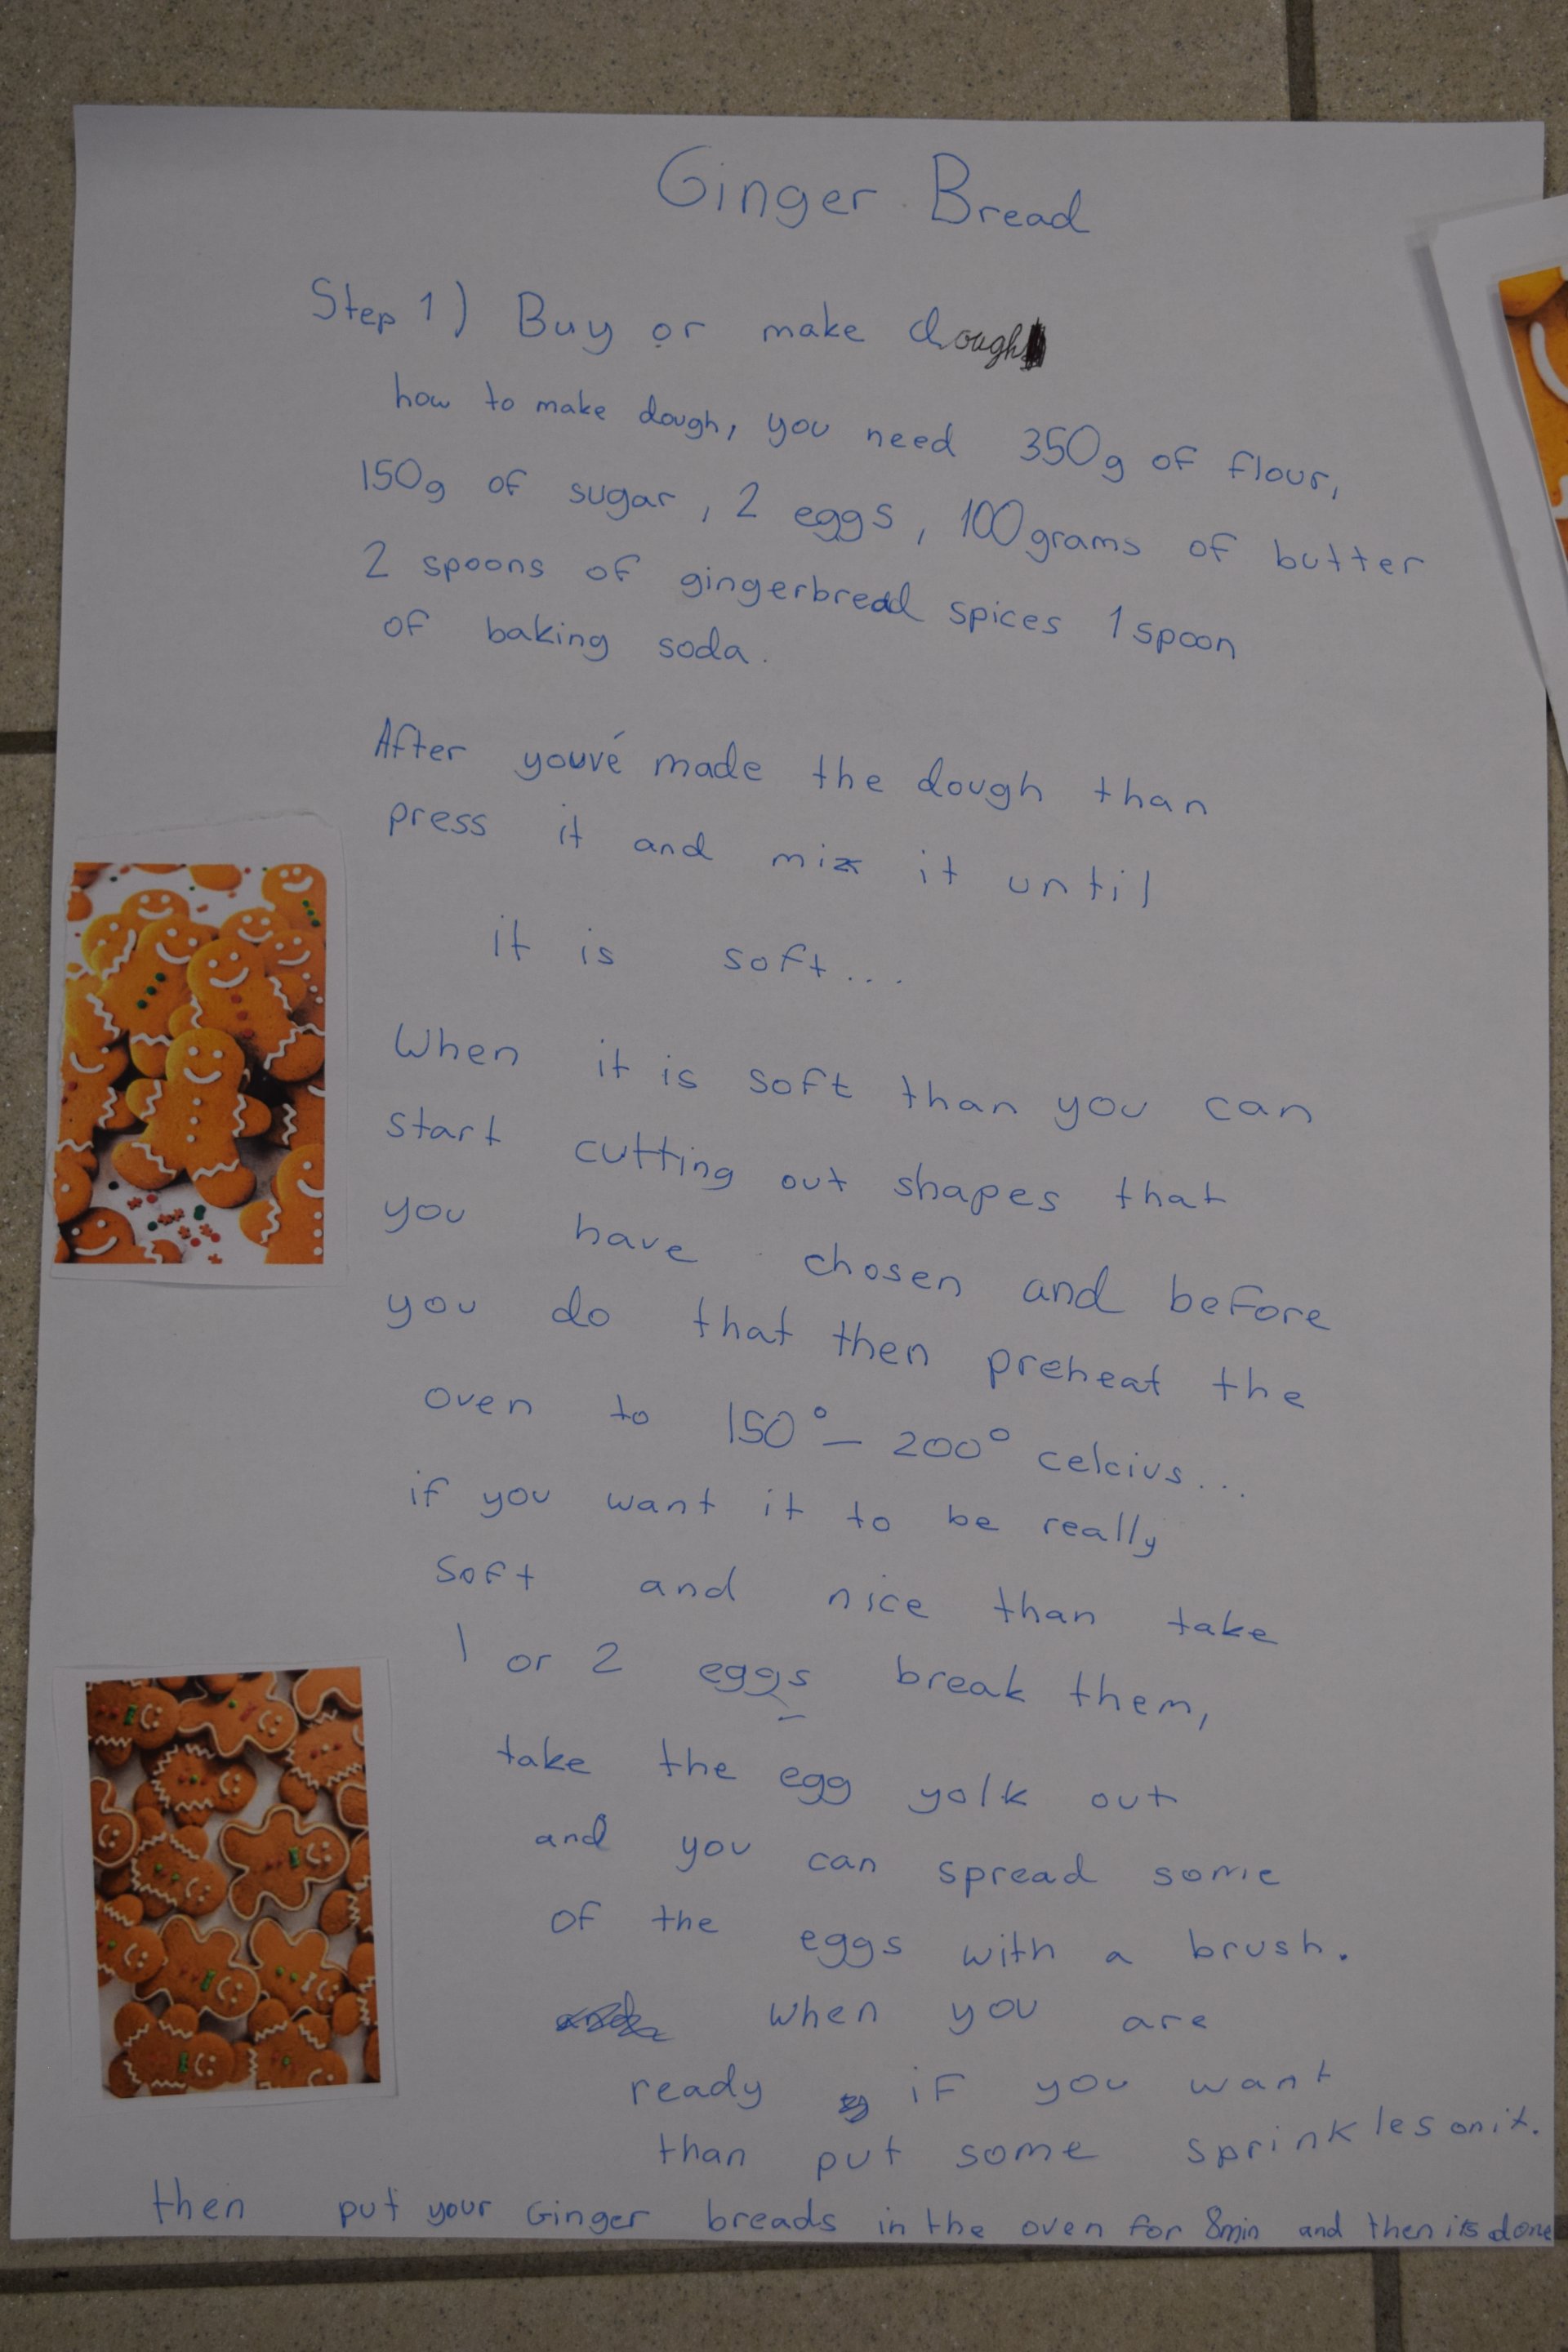 Ginger Bread
Step 1) Buy or make dough
how to make dough, you need 350g of flour,
150g of sugar, 2 eggs, 100grams of butter
2 spoons of gingerbread spices 1 spoon
of baking soda.
After youvé made the dough than
press it and mix it until
it is soft...
When it is soft than you can
start cutting out shapes that
you have chosen and before
you do that then preheat the
oven to 150°- 200° celcius...
if you want it to be really
soft and nice than take
1 or 2 eggs break them,
take the egg yolk out
and you can spread some
of the eggs with a brush.
when you are
ready if you want
than put some sprinkles on it.
then put your Ginger breads in the oven for 8min and then its done